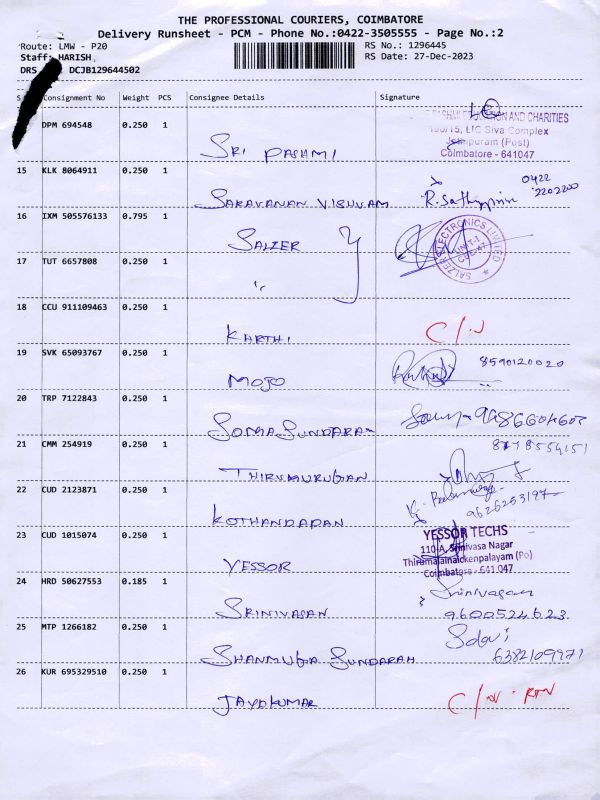 THE PROFESSIONAL COURIERS, COIMBATORE
Delivery Runsheet - PCM - Phone No.:0422-3505555 - Page No.:2
Route: LMW - P20
RS No.: 1296445
Staff: HARISH
RS Date: 27-Dec-2023
DRS DCJB129644502
S Consignment No Weight PCS Consignee Details Signature
DPM 694548 0.250 1
SRI PASHMI
AND CHARITIES
190/15, LIC Siva Complex
(Post)
Coimbatore - 641047
15 KLK 8064911 0.250 1
SARAVANAN VISHVAM
0422
2202200
16 IXM 505576133 0.795 1
SALZER
SALZER ELECTRONICS LIMITED
UNIT-I
17 TUT 6657808 0.250 1
"
18 CCU 911109463 0.250 1
KARTHI
C/N
19 SVK 65093767 0.250 1
MOJO
8590120020
20 TRP 7122843 0.250 1
SOMASUNDARAM
21 CMM 254919 0.250 1
THIRUMURUGAN
22 CUD 2123871 0.250 1
KOTHANDAPAN
9626253197
23 CUD 1015074 0.250 1
YESSOR
YESSOR TECHS
110-A, Srinivasa Nagar
Thirumalainaickenpalayam (Po)
Coimbatore - 641 047
24 HRD 50627553 0.185 1
SRINIVASAN
Srinivasan
9600524623
25 MTP 1266182 0.250 1
SHANMUGA SUNDARAM
6382109971
26 KUR 695329510 0.250 1
JAYAKUMAR
C/N - RTN